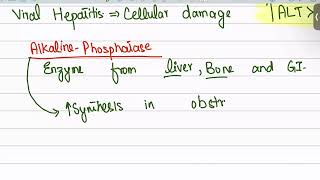 Viral Hepatitis ⇒ Cellular damage ↑ALT >
Alkaline-Phosphatase
Enzyme from liver, Bone and GI-
↑Synthesis in obstr